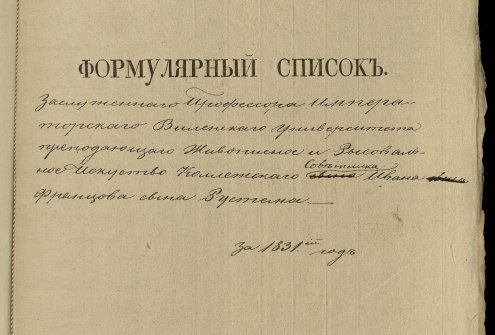 ФОРМУЛЯРНЫЙ СПИСОКЪ.
Заслуженнаго Профессора Импера-
торскаго Виленскаго Университета
преподающаго Живописное и Рисоваль-
ное Искуство Коллежскаго Совѣтника Ивана
Францова сына Рустема.
За 1831.ый годъ